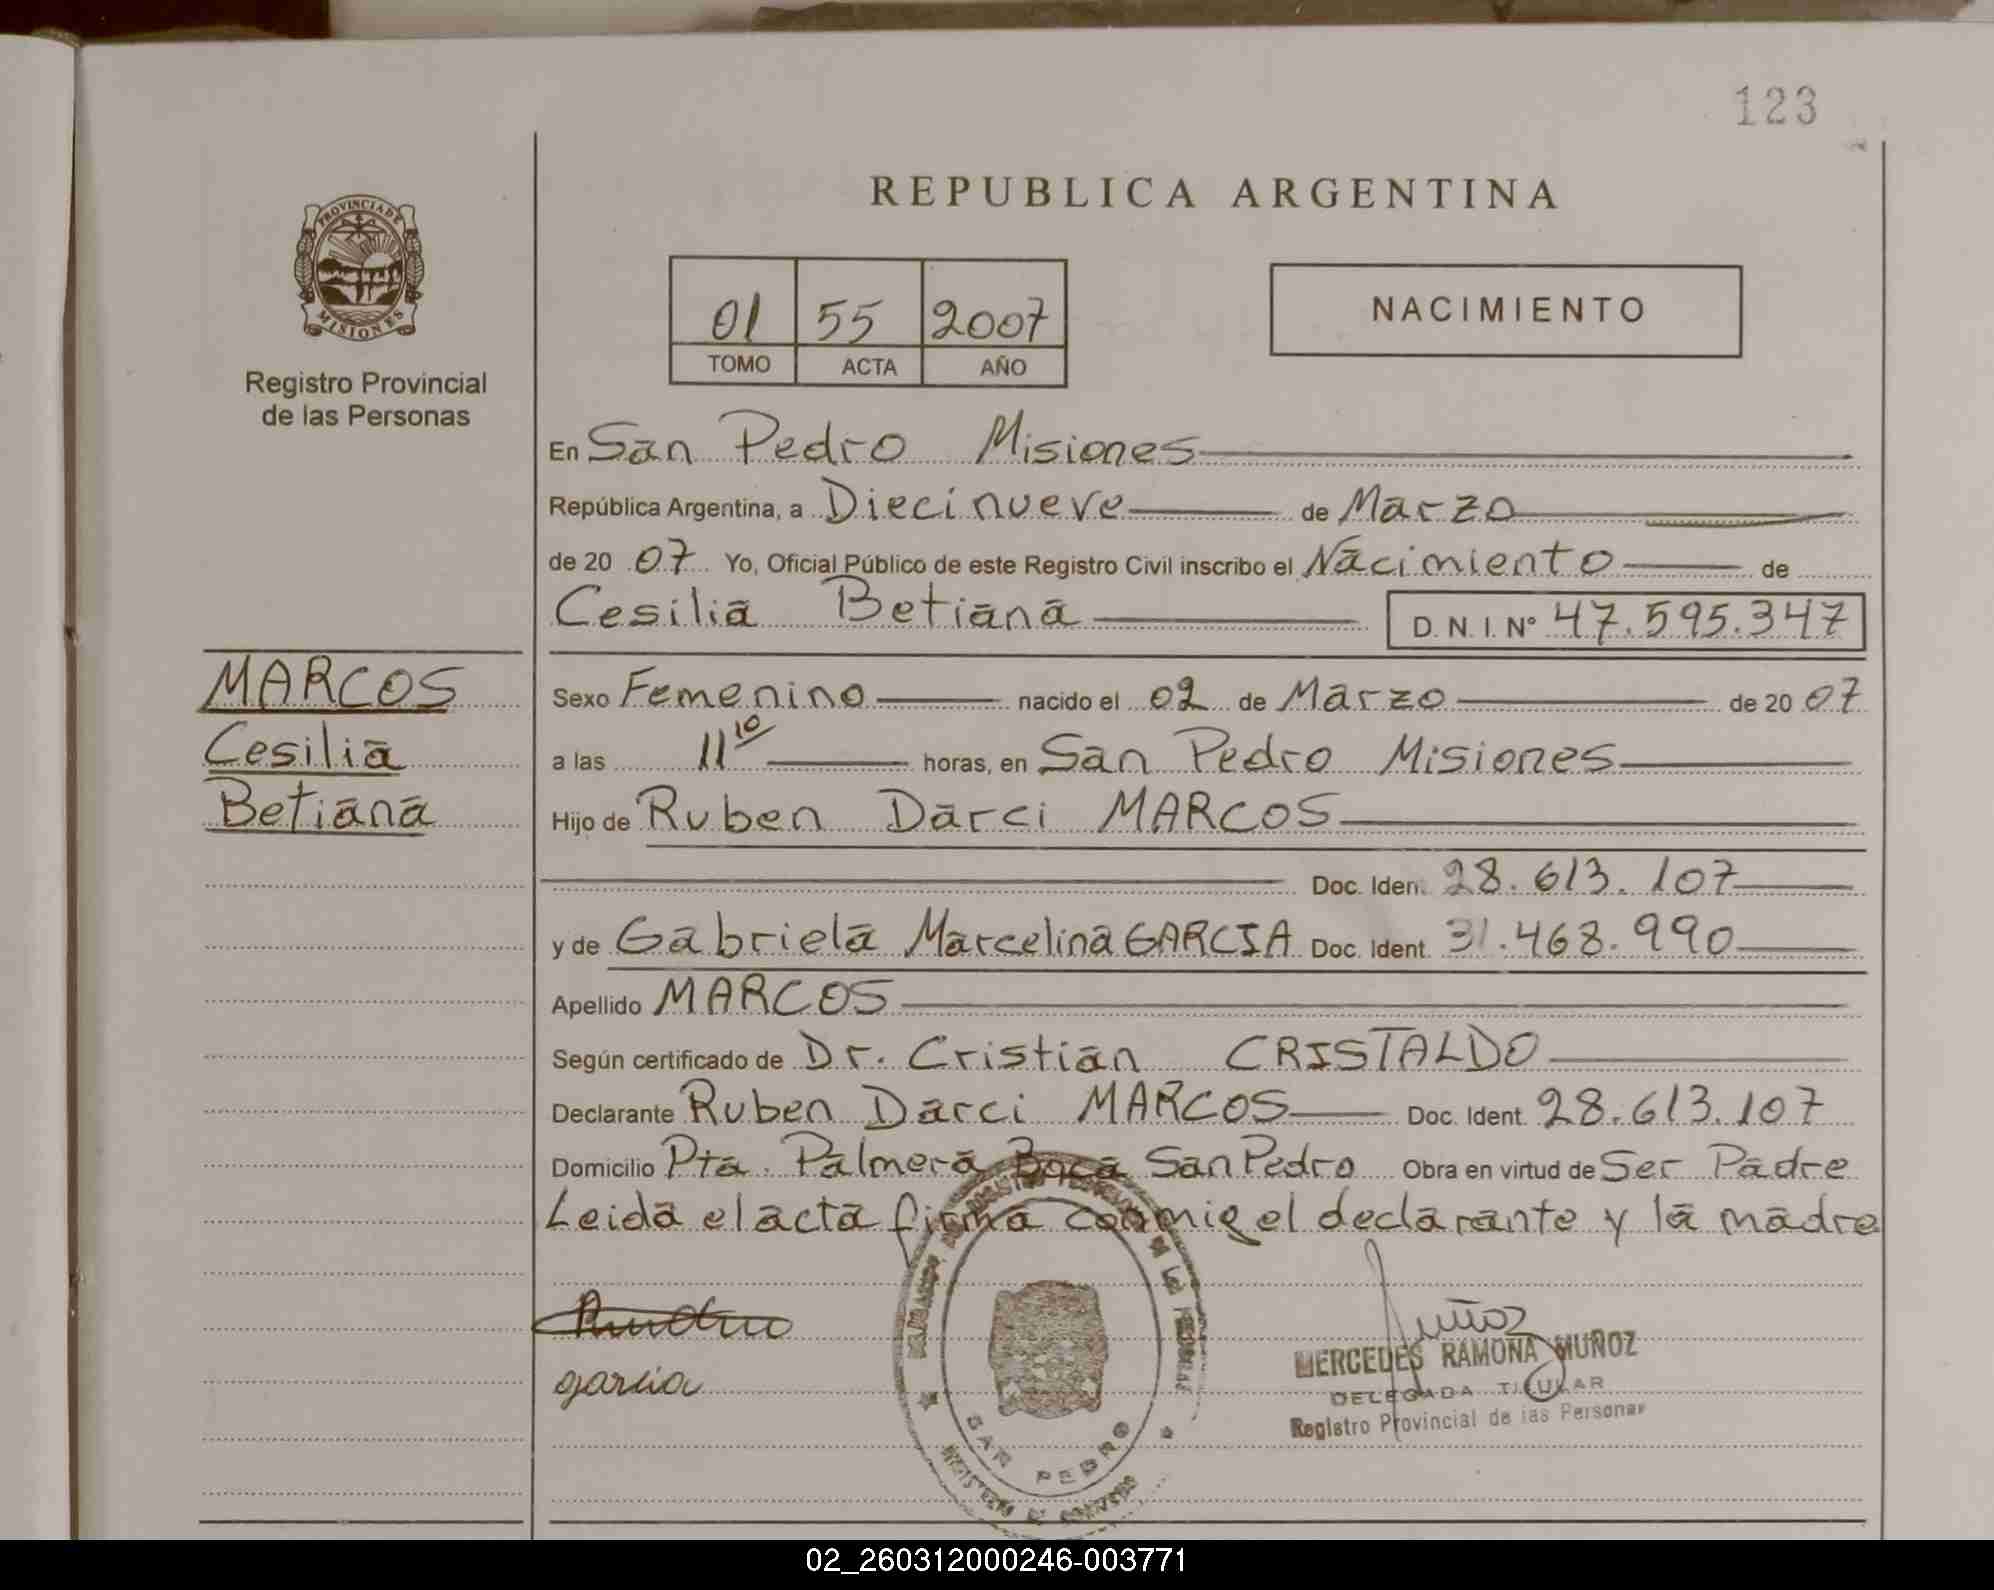 123
REPUBLICA ARGENTINA
PROVINCIA DE
MISIONES
Registro Provincial
de las Personas
01 55 2007
TOMO ACTA AÑO
NACIMIENTO
En San Pedro Misiones
República Argentina, a Diecinueve de Marzo
de 20 07 Yo, Oficial Público de este Registro Civil inscribo el Nacimiento de
Cesilia Betiana D. N. I. Nº 47.595.347
MARCOS
Cesilia
Betiana
Sexo Femenino nacido el 02 de Marzo de 20 07
a las 11 10 horas, en San Pedro Misiones
Hijo de Ruben Darci MARCOS
Doc. Iden. 28.613.107
y de Gabriela Marcelina GARCIA Doc. Ident. 31.468.990
Apellido MARCOS
Según certificado de Dr. Cristian CRISTALDO
Declarante Ruben Darci MARCOS Doc. Ident. 28.613.107
Domicilio Pta. Palmera Boca San Pedro Obra en virtud de Ser Padre
Leida el acta firma conmig el declarante y la madre
garcia
Muñoz
MERCEDES RAMONA MUÑOZ
DELEGADA TITULAR
Registro Provincial de las Personas
SAN PEDRO
02_260312000246-003771